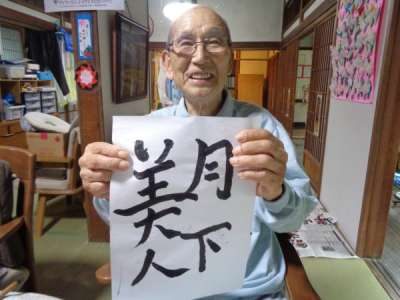 月下
美人